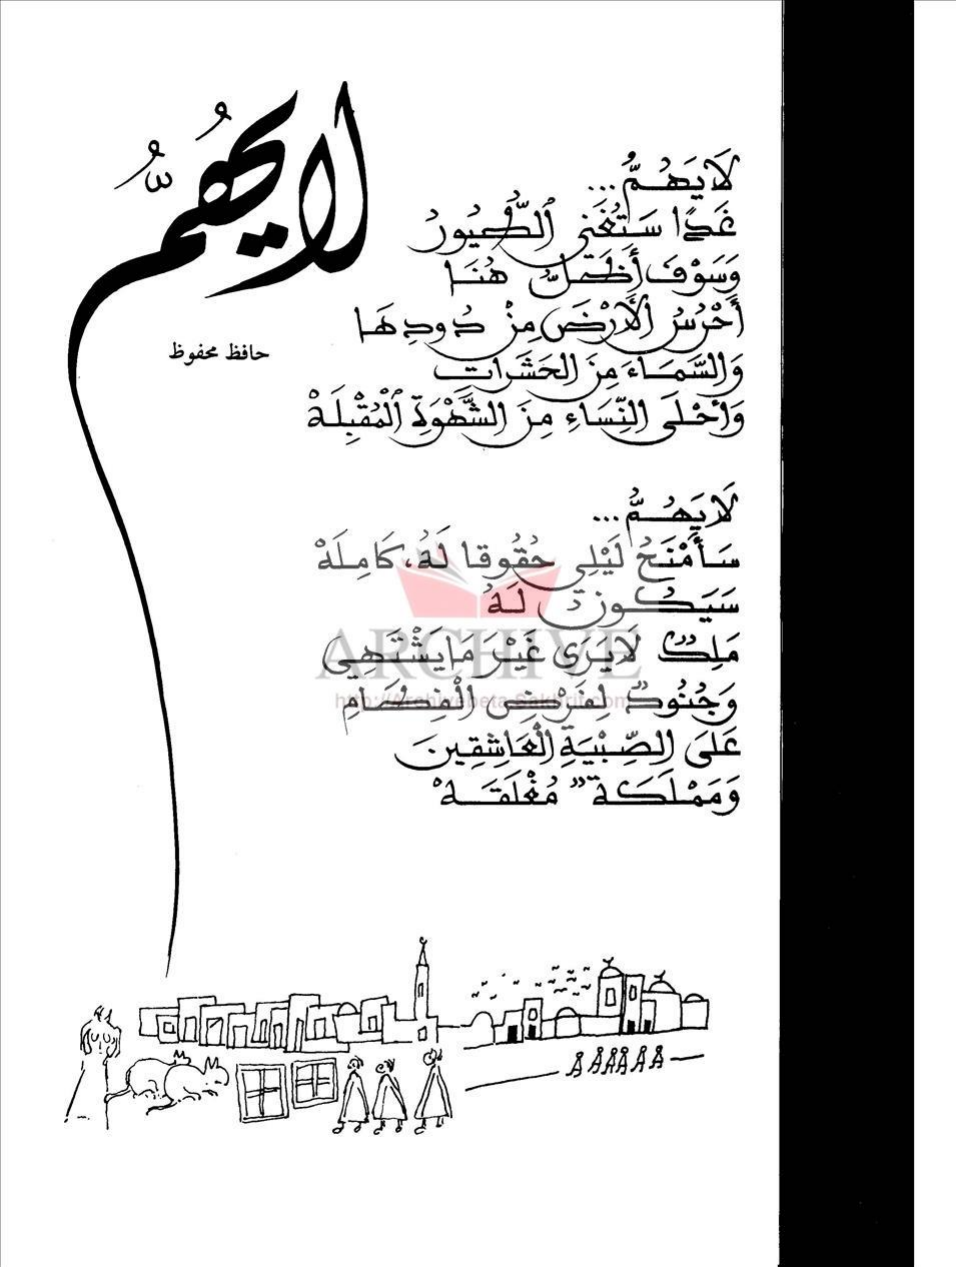 لا يهُمُّ
حافظ محفوظ
لَا يَهُمُّ...
غَدًا سَتُغَنِي الطُّيُورُ
وَسَوْفَ أَظَلُّ هُنَا
أَحْرُسُ الْأَرْضَ مِنْ دُودِهَا
وَالسَّمَاءَ مِنَ الحَشَرَات
وَأَحْلَى النِّسَاءِ مِنَ الشَّهْوَةِ الْمُقْبِلَهْ
لَا يَهُمُّ...
سَأَمْنَحُ لَيْلِي حُقُوقا لَهُ، كَامِلَهْ
سَيَكُونُ لَهُ
مَلِكٌ لَا يَرَى غَيْرَ مَا يَشْتَهِي
وَجُنُودٌ لِفَرْضِ الْفِصَامِ
عَلَى الصِّبْيَةِ الْعَاشِقِينَ
وَمَمْلَكَةٌ مُغْلَقَهْ
ARCHIVE
http://Archivebeta.Sakhrit.com